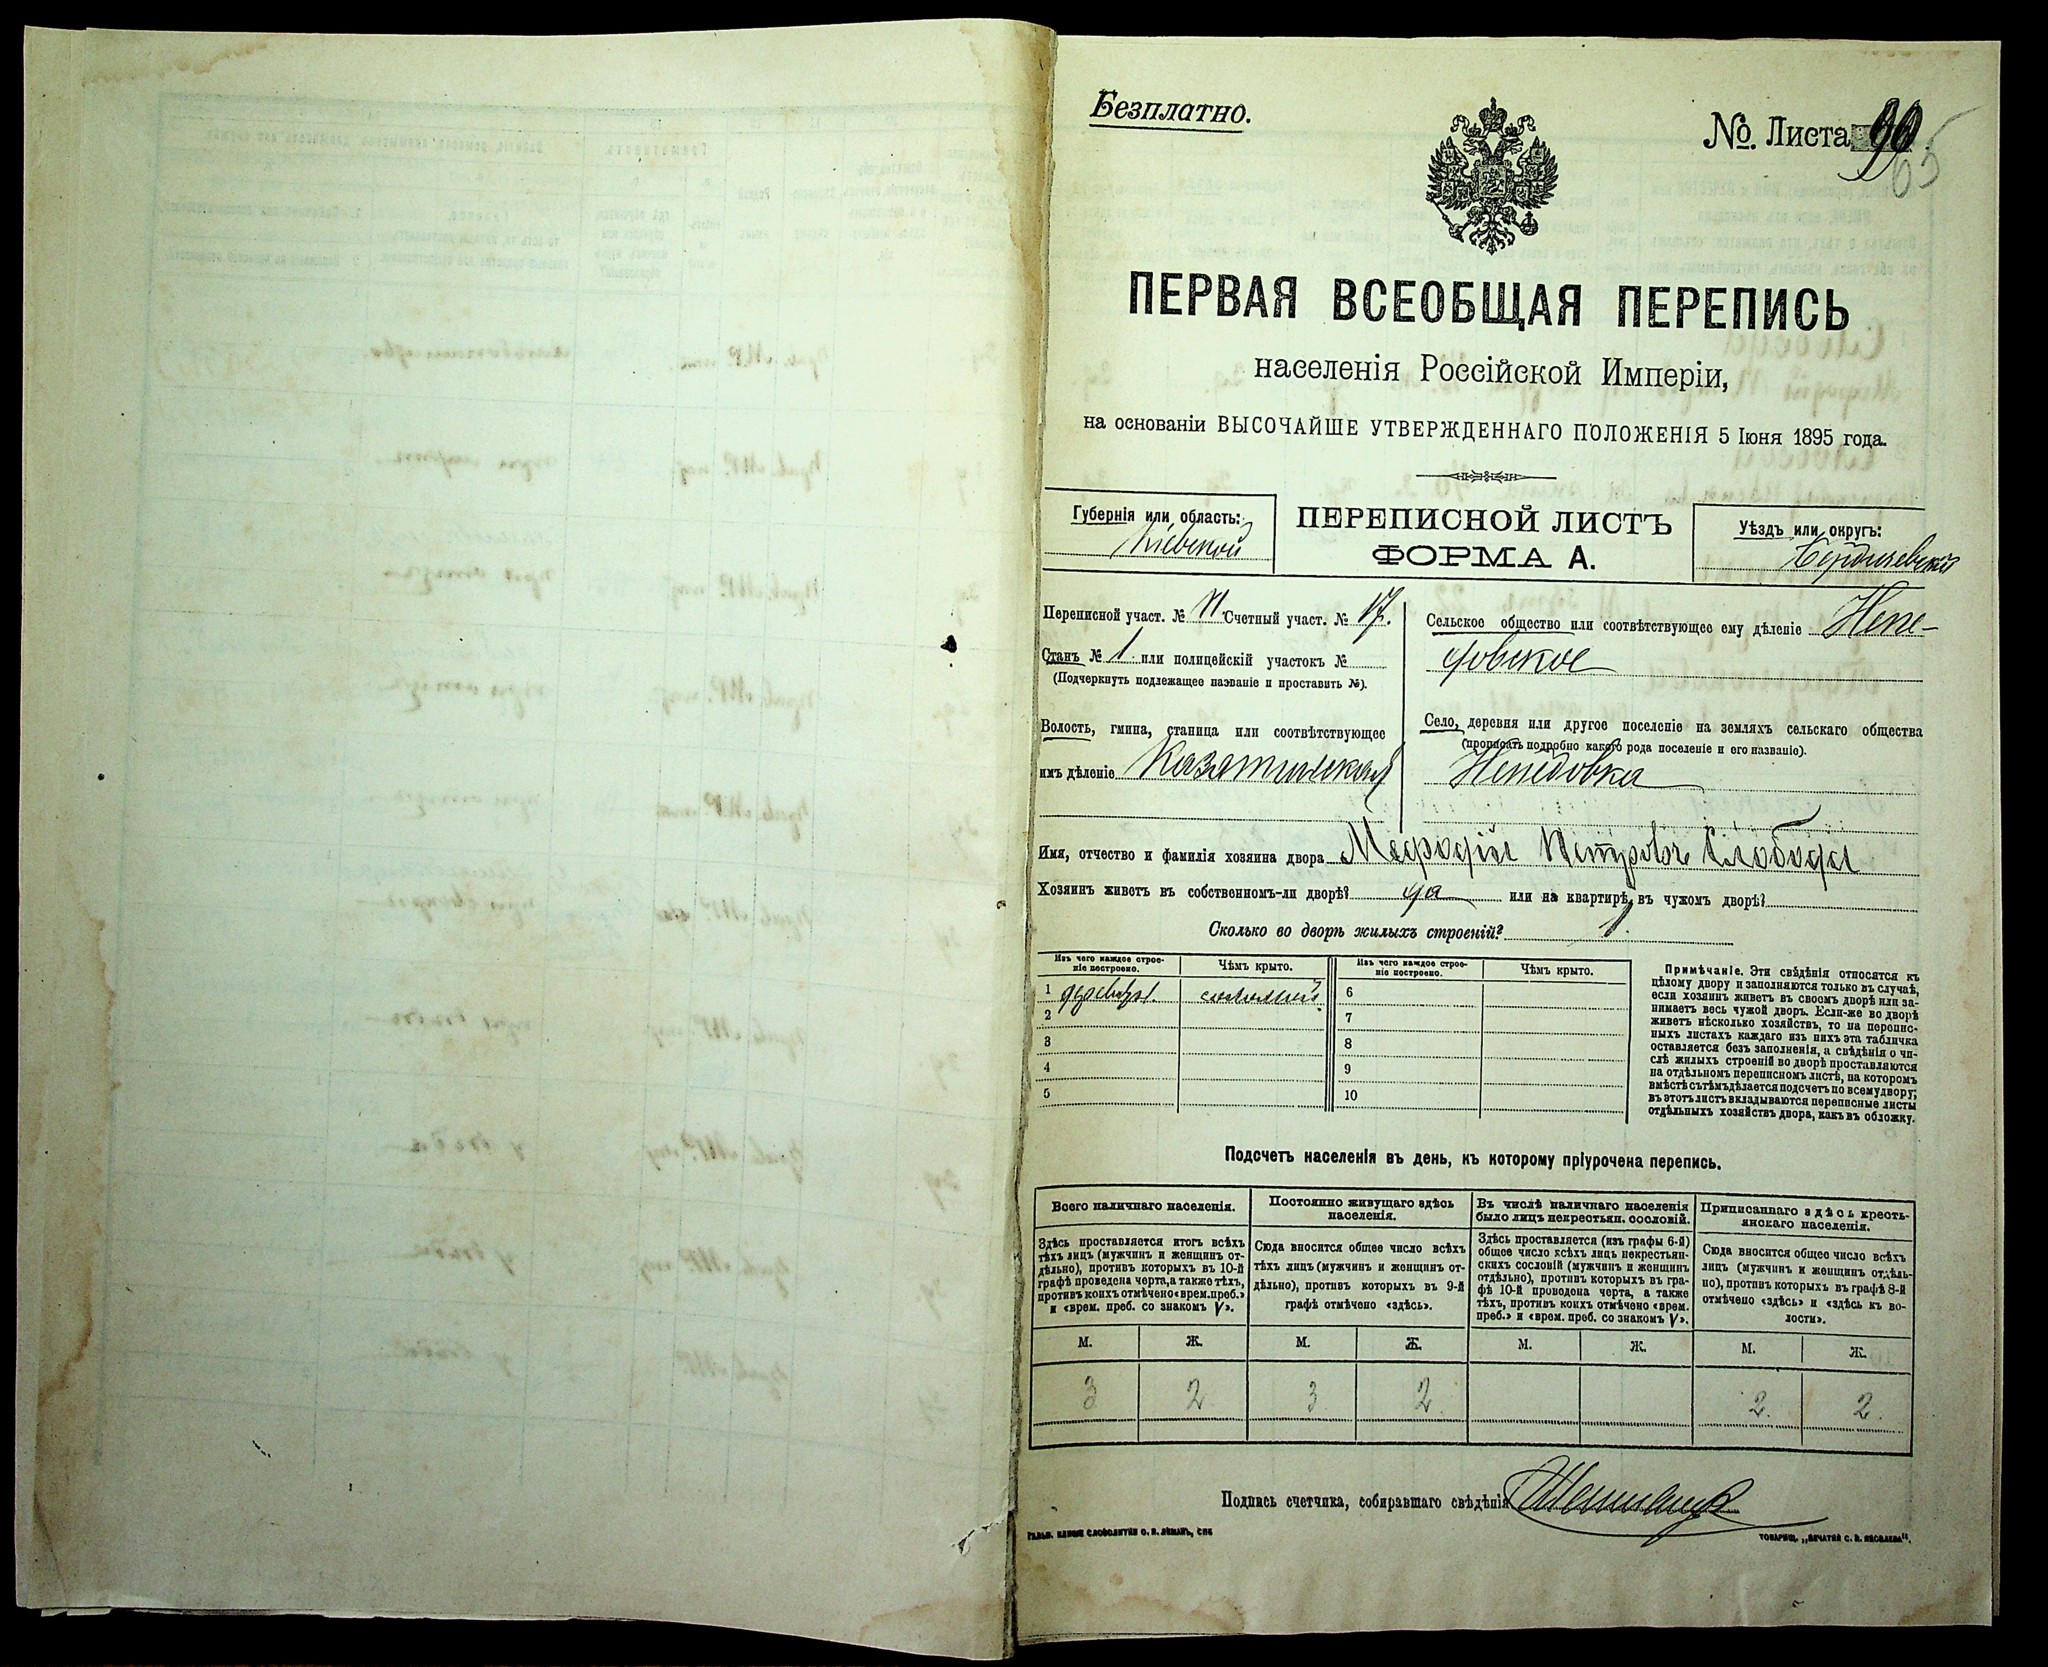 Безплатно.
№. Листа 90
65
ПЕРВАЯ ВСЕОБЩАЯ ПЕРЕПИСЬ
населенія Россійской Имперіи,
на основаніи ВЫСОЧАЙШЕ УТВЕРЖДЕННАГО ПОЛОЖЕНІЯ 5 Іюня 1895 года.
Губернія или область:
Кіевской
ПЕРЕПИСНОЙ ЛИСТЪ
ФОРМА А.
Уѣздъ или округъ:
Бердичевский
Переписной участ. № Счетный участ. № 17.
Станъ № 1 или полицейскій участокъ №
(Подчеркнуть подлежащее названіе и проставить №).
Волость, гмина, станица или соотвѣтствующее
имъ дѣленіе Казатинская
Сельское общество или соотвѣтствующее ему дѣленіе Непе-
довское
Село, деревня или другое поселеніе на земляхъ сельскаго общества
(прописать подробно какого рода поселеніе и его названіе).
Непедовка
Имя, отчество и фамилія хозяина двора Мефодій Петровъ Слобода
Хозяинъ живетъ въ собственномъ-ли дворѣ? да или на квартирѣ въ чужомъ дворѣ?
Сколько во дворѣ жилыхъ строеній? 1.
Изъ чего каждое строе-
ніе построено.
Чѣмъ крыто.
Изъ чего каждое строе-
ніе построено.
Чѣмъ крыто.
1 соломой 6
2 7
3 8
4 9
5 10
Примѣчаніе. Эти свѣдѣнія относятся къ
цѣлому двору и заполняются только въ случаѣ,
если хозяинъ живетъ въ своемъ дворѣ или за-
нимаетъ весь чужой дворъ. Если-же во дворѣ
живетъ нѣсколько хозяйствъ, то на перепис-
ныхъ листахъ каждаго изъ нихъ эта табличка
оставляется безъ заполненія, а свѣдѣнія о чи-
слѣ жилыхъ строеній во дворѣ проставляются
на отдѣльномъ переписномъ листѣ, на которомъ
вмѣстѣ съ тѣмъ дѣлается подсчетъ по всему двору;
въ этотъ листъ вкладываются переписные листы
отдѣльныхъ хозяйствъ двора, какъ въ обложку.
Подсчетъ населенія въ день, къ которому пріурочена перепись.
Всего наличнаго населенія.
Здѣсь проставляется итогъ всѣхъ
тѣхъ лицъ (мужчинъ и женщинъ от-
дѣльно), противъ которыхъ въ 10-й
графѣ проведена черта, а также тѣхъ,
противъ коихъ отмѣчено «врем. преб.»
и «врем. преб. со знакомъ V».
Постоянно живущаго здѣсь
населенія.
Сюда вносится общее число всѣхъ
тѣхъ лицъ (мужчинъ и женщинъ от-
дѣльно), противъ которыхъ въ 9-й
графѣ отмѣчено «здѣсь».
Въ числѣ наличнаго населенія
было лицъ некрестьян. сословій.
Здѣсь проставляется (изъ графы 6-й)
общее число всѣхъ лицъ некрестьян-
скихъ сословій (мужчинъ и женщинъ
отдѣльно), противъ которыхъ въ гра-
фѣ 10-й проведена черта, а также
тѣхъ, противъ коихъ отмѣчено «врем.
преб.» и «врем. преб. со знакомъ V».
Приписаннаго здѣсь кресть-
янскаго населенія.
Сюда вносится общее число всѣхъ
лицъ (мужчинъ и женщинъ отдѣль-
но), противъ которыхъ въ графѣ 8-й
отмѣчено «здѣсь» и «здѣсь къ во-
лости».
М. Ж. М. Ж. М. Ж. М. Ж.
3 2 3 2 2. 2.
Подпись счетчика, собиравшаго свѣдѣнія
ГАЛЬВ. КЛИШЕ СЛОВОЛИТНИ О. И. ЛЕМАНЪ, СПБ
ТОВАРИЩ. „ПЕЧАТНЯ С. П. ЯКОВЛЕВА“.